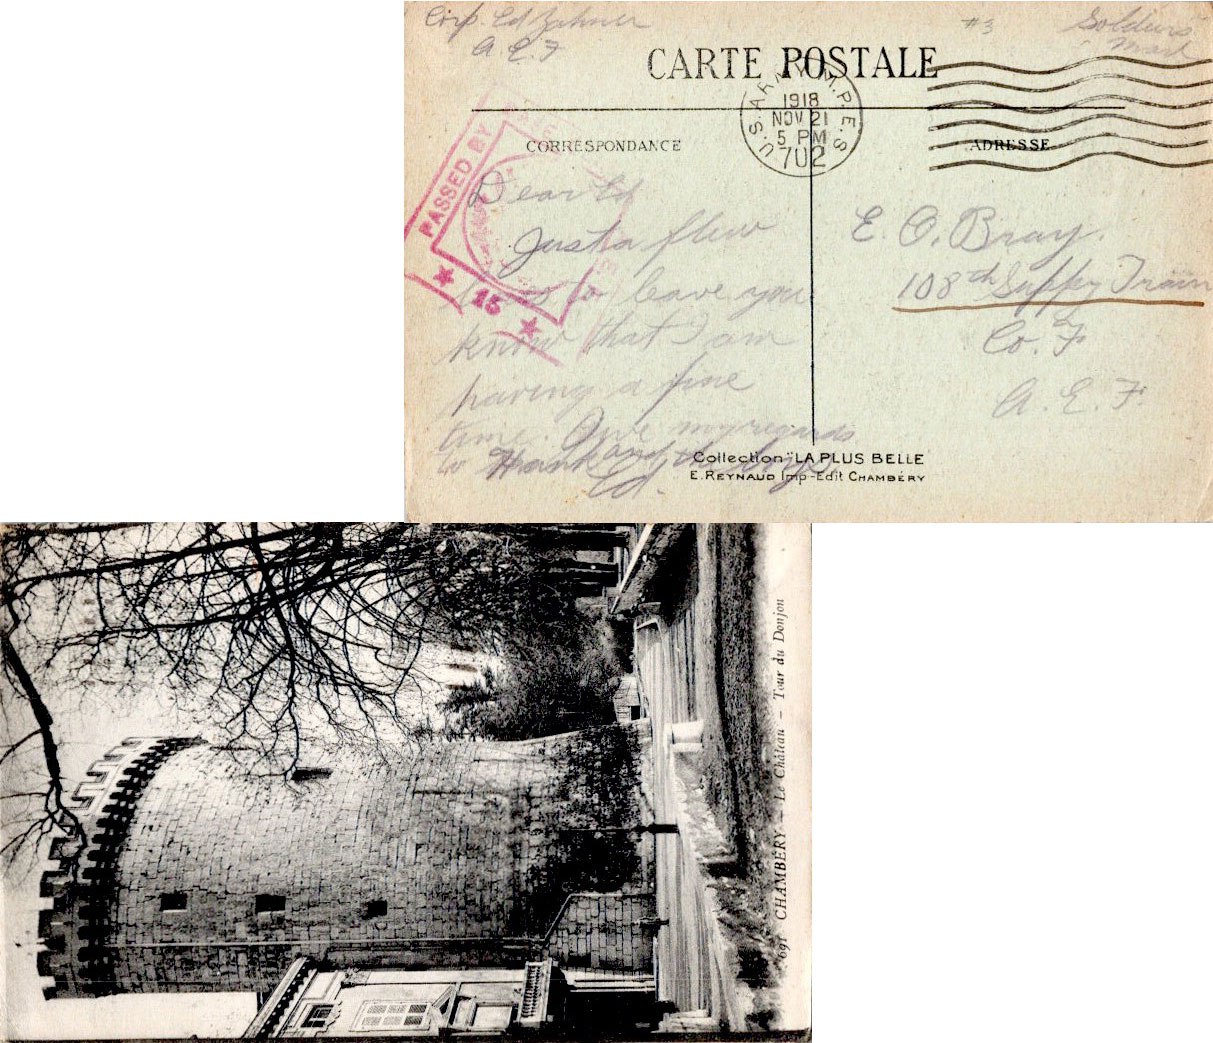 Corp. Ed Zahner
A E F
#3
Soldiers
Mail
CARTE POSTALE
U.S. ARMY M.P.E.S.
1918
NOV 21
5 PM
702
CORRESPONDANCE
ADRESSE
PASSED BY
★ 15 ★
Dear Ed
Just a few
lines to leave you
know that I am
having a fine
time. Give my regards
to Hank and the boys
Ed.
E. O. Bray.
108th Supply Train
Co. F
A. E. F.
Collection "LA PLUS BELLE
E. REYNAUD Imp-Edit CHAMBÉRY
691 CHAMBÉRY - Le Château - Tour du Donjon